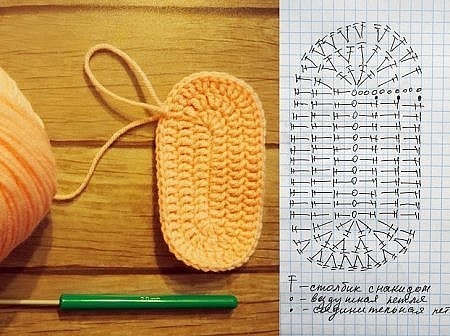 † - столбик с накидом
о - воздушная петля
• - соединительная пет